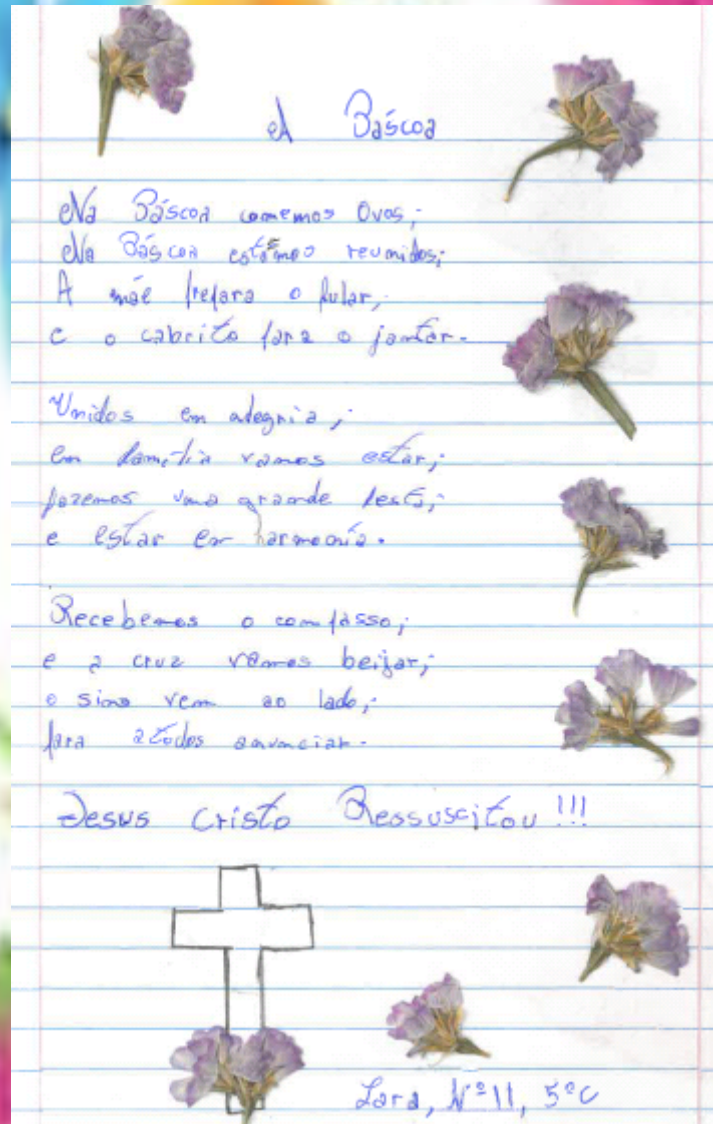 A Páscoa
Na Páscoa comemos Ovos;
Na Páscoa estamos reunidos;
A mãe prepara o fular,
e o cabrito para o jantar.
Unidos em alegria;
em família vamos estar;
fazemos uma grande festa;
e estar em harmonia.
Recebemos o compasso;
e a cruz vamos beijar;
o sino vem ao lado;
para a todos anunciar.
Jesus Cristo Ressuscitou!!!
Lara, Nº11, 5ºC